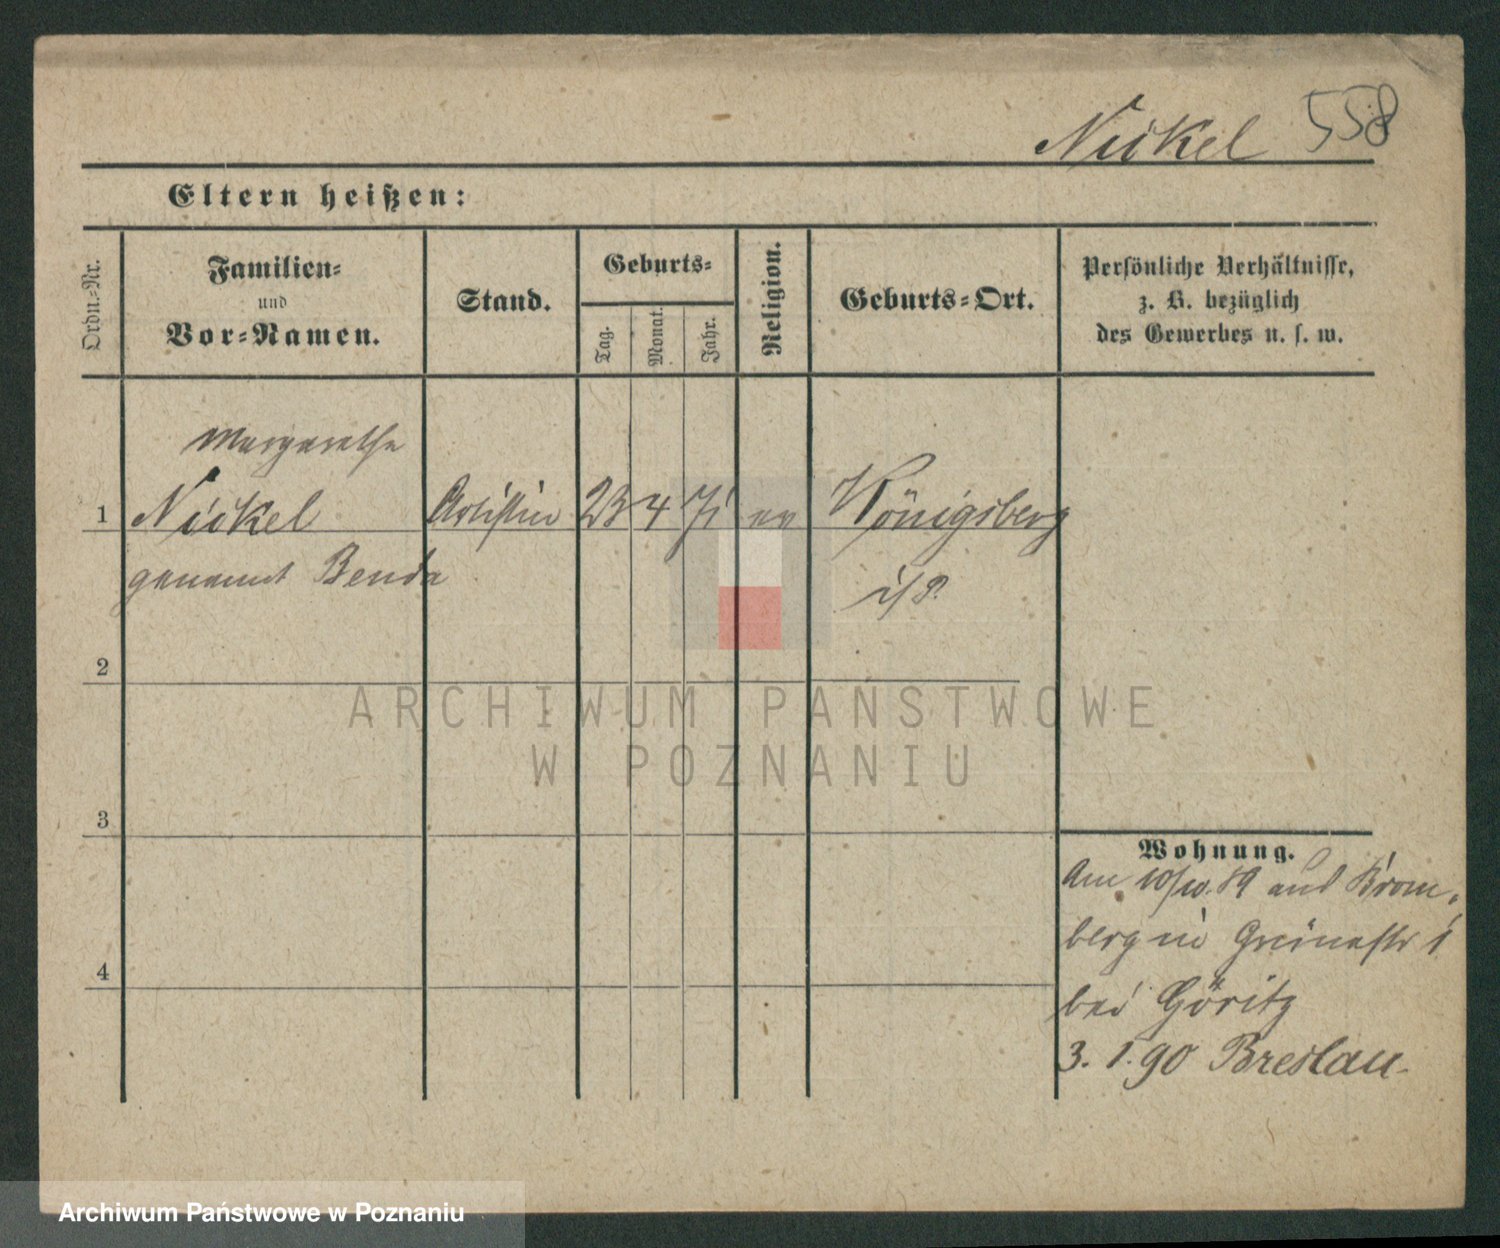 Nickel 558
Eltern heißen:
Ordn.-Nr.
Familien-
und
Vor-Namen.
Stand.
Geburts-
Tag.
Monat.
Jahr.
Religion.
Geburts-Ort.
Persönliche Verhältnisse,
z. B. bezüglich
des Gewerbes u. s. w.
Margarethe
1 Nickel Artistin 23 4 71 ev Königsberg
genannt Benda i/P.
2
ARCHIWUM PAŃSTWOWE
W POZNANIU
3
Wohnung.
Am 10/10. 89 aus Brom-
berg in 1
4
bei Göritz
3. 1. 90 Breslau
Archiwum Państwowe w Poznaniu